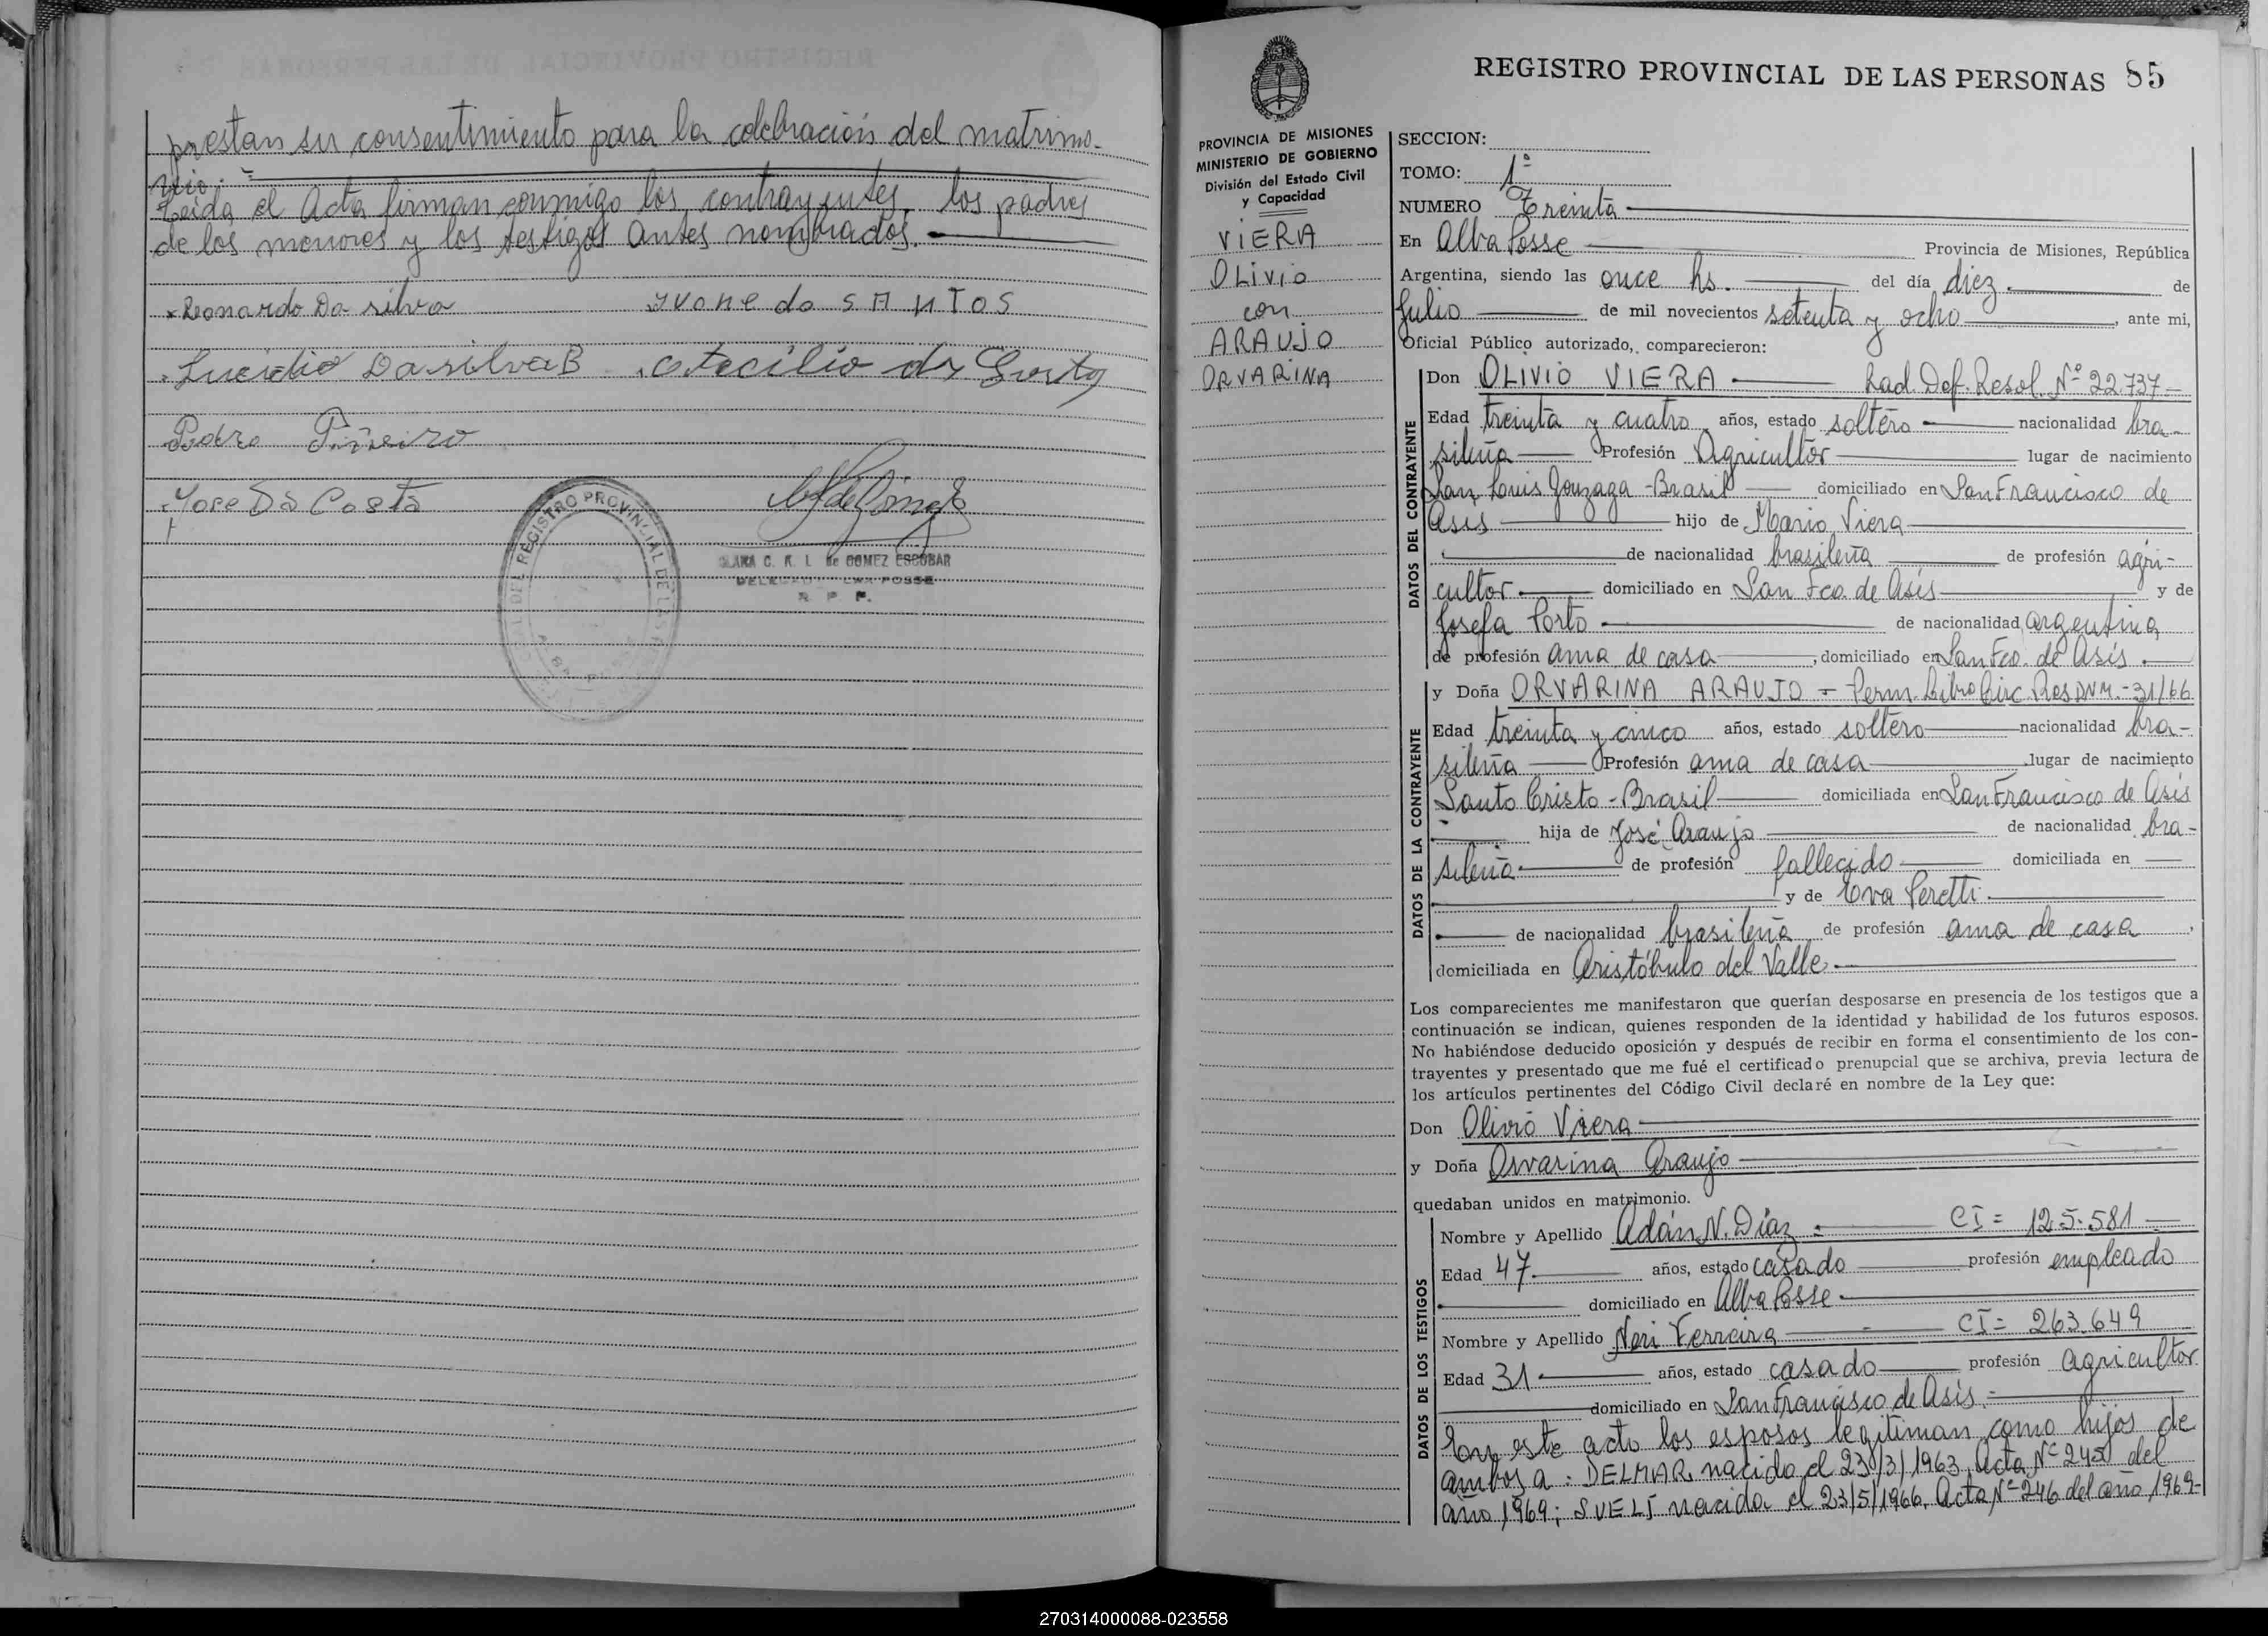 prestan su consentimiento para la celebración del matrimo-
nio.
Leida el Acta firman conmigo los contrayentes, los padres
de los menores y los testigos antes nombrados.
Leonardo Da silva Ivone do SANTOS
Lucidio Da silva B
Pedro Piñeiro
Jose Da Costa
CLARA C. K. L. de GOMEZ ESCOBAR
R. P. P.
REGISTRO PROVINCIAL DE LAS PERSONAS 85
PROVINCIA DE MISIONES
MINISTERIO DE GOBIERNO
División del Estado Civil
y Capacidad
VIERA
OLivio
con
ARAUJO
ORVARINA
SECCION:
TOMO: 1º
NUMERO Treinta
En Alba Posse Provincia de Misiones, República
Argentina, siendo las once hs. del día diez de
Julio de mil novecientos setenta y ocho, ante mi,
Oficial Público autorizado, comparecieron:
DATOS DEL CONTRAYENTE
Don OLIVIO VIERA Rad. Def. Resol. Nº 22.737
Edad treinta y cuatro años, estado soltero nacionalidad bra-
sileña Profesión Agricultor lugar de nacimiento
San Louis Gonzaga - Brasil domiciliado en San Francisco de
Asís hijo de Mario Viera
de nacionalidad brasileña de profesión agri-
cultor domiciliado en San Fco. de Asís y de
Josefa Porto de nacionalidad argentina
de profesión ama de casa, domiciliado en San Fco. de Asís.
DATOS DE LA CONTRAYENTE
y Doña ORVARINA ARAUJO - Perm. Libre Circ. Res DNM.-31/66
Edad treinta y cinco años, estado soltero nacionalidad bra-
sileña Profesión ama de casa lugar de nacimiento
Santo Cristo - Brasil domiciliada en San Francisco de Asís
hija de José Araujo de nacionalidad bra-
sileña de profesión fallecido domiciliada en
y de Eva Peretti
de nacionalidad brasileña de profesión ama de casa,
domiciliada en Aristóbulo del Valle.
Los comparecientes me manifestaron que querían desposarse en presencia de los testigos que a
continuación se indican, quienes responden de la identidad y habilidad de los futuros esposos.
No habiéndose deducido oposición y después de recibir en forma el consentimiento de los con-
trayentes y presentado que me fué el certificado prenupcial que se archiva, previa lectura de
los artículos pertinentes del Código Civil declaré en nombre de la Ley que:
Don Olivio Viera
y Doña Orvarina Araujo
quedaban unidos en matrimonio.
DATOS DE LOS TESTIGOS
Nombre y Apellido Adán N. Díaz CI= 125.581
Edad 47 años, estado casado profesión empleado
domiciliado en Alba Posse
Nombre y Apellido Neri Ferreira CI= 263.649
Edad 31 años, estado casado profesión agricultor
domiciliado en San Francisco de Asís.
En este acto los esposos legitiman como hijos de
ambos a: DELMAR nacido el 23/3/1963 Acta Nº 245 del
año 1969; SUELI nacida el 23/5/1966, Acta Nº 246 del año 1969-
270314000088-023558